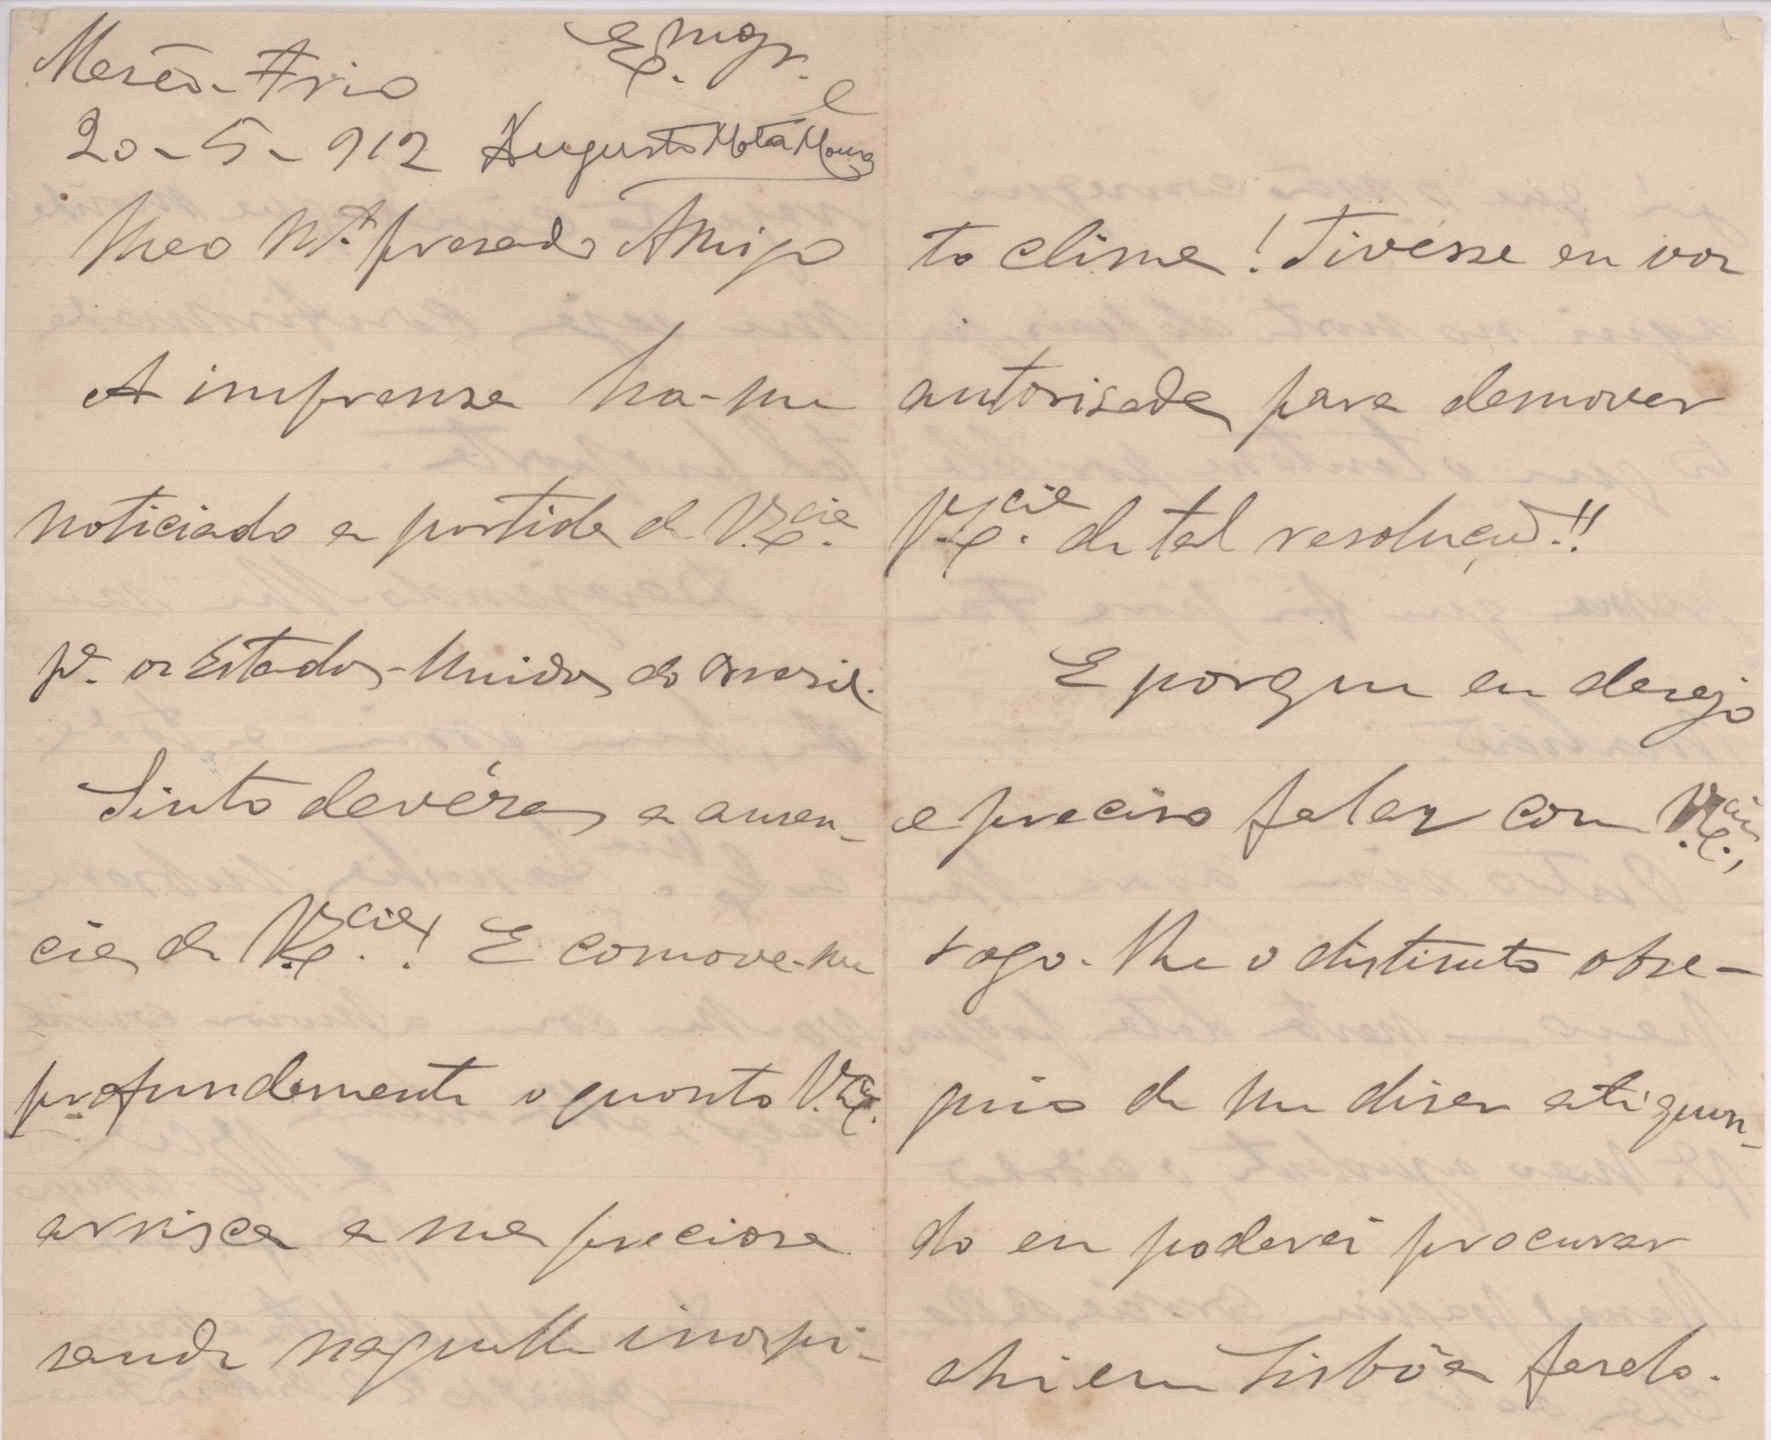 Mesão-Frio
20-5-912
Exmo. Sr.
Augusto Mota Moura
Meo Mto. presado Amigo
A imprensa ha-me
noticiado a partida de V. Excia.
pa. os Estados-Unidos do Brasil.
Sinto devéras a ausen-
cia de V. Excia.! E comove-me
profundamente o quanto V. Excia.
arrisca a sua preciosa
saude naquelle inospi-
to clima! Tivésse eu voz
autorisada para demover
V. Excia. de tal resolução!!
E porque eu desejo
e preciso falar com V. Excia.,
rogo-lhe o distinto obse-
quio de me diser até quan-
do eu poderei procurar
ahi em Lisbôa